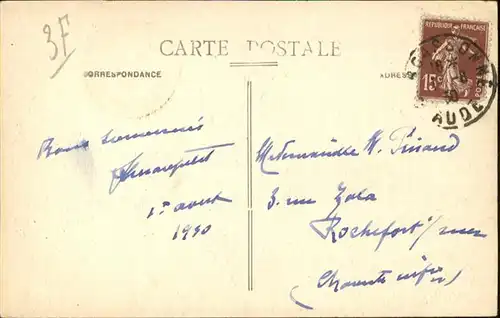 3F
CARTE POSTALE
CORRESPONDANCE
ADRESSE
REPUBLIQUE FRANÇAISE
15c
POSTES
CARCASSONNE
AUDE
Bons Souvenirs
1er août
1930
Mademoiselle M. Pinard
3. rue Zola
Rochefort s/ mer
(Charente infre)